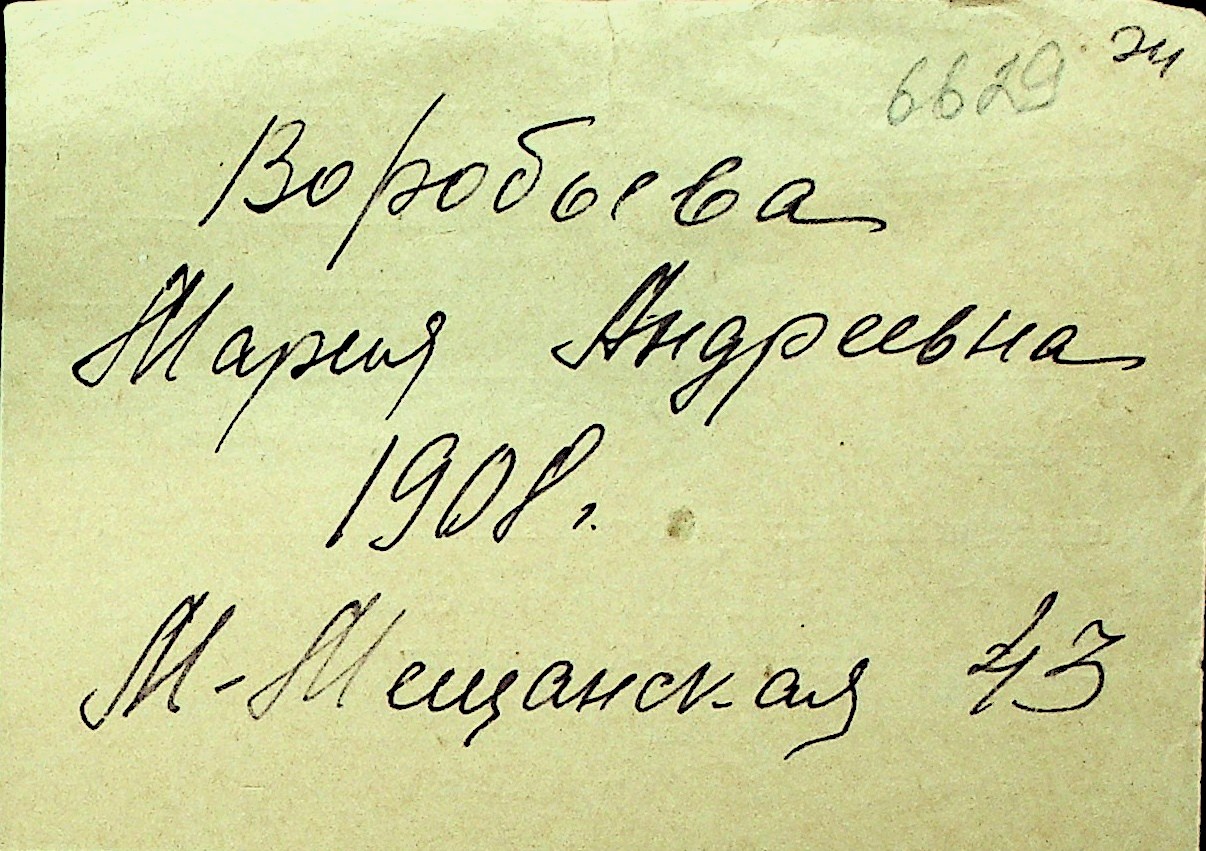 6629
Воробьева
Мария Андреевна
1908г.
М-Мещанская 43